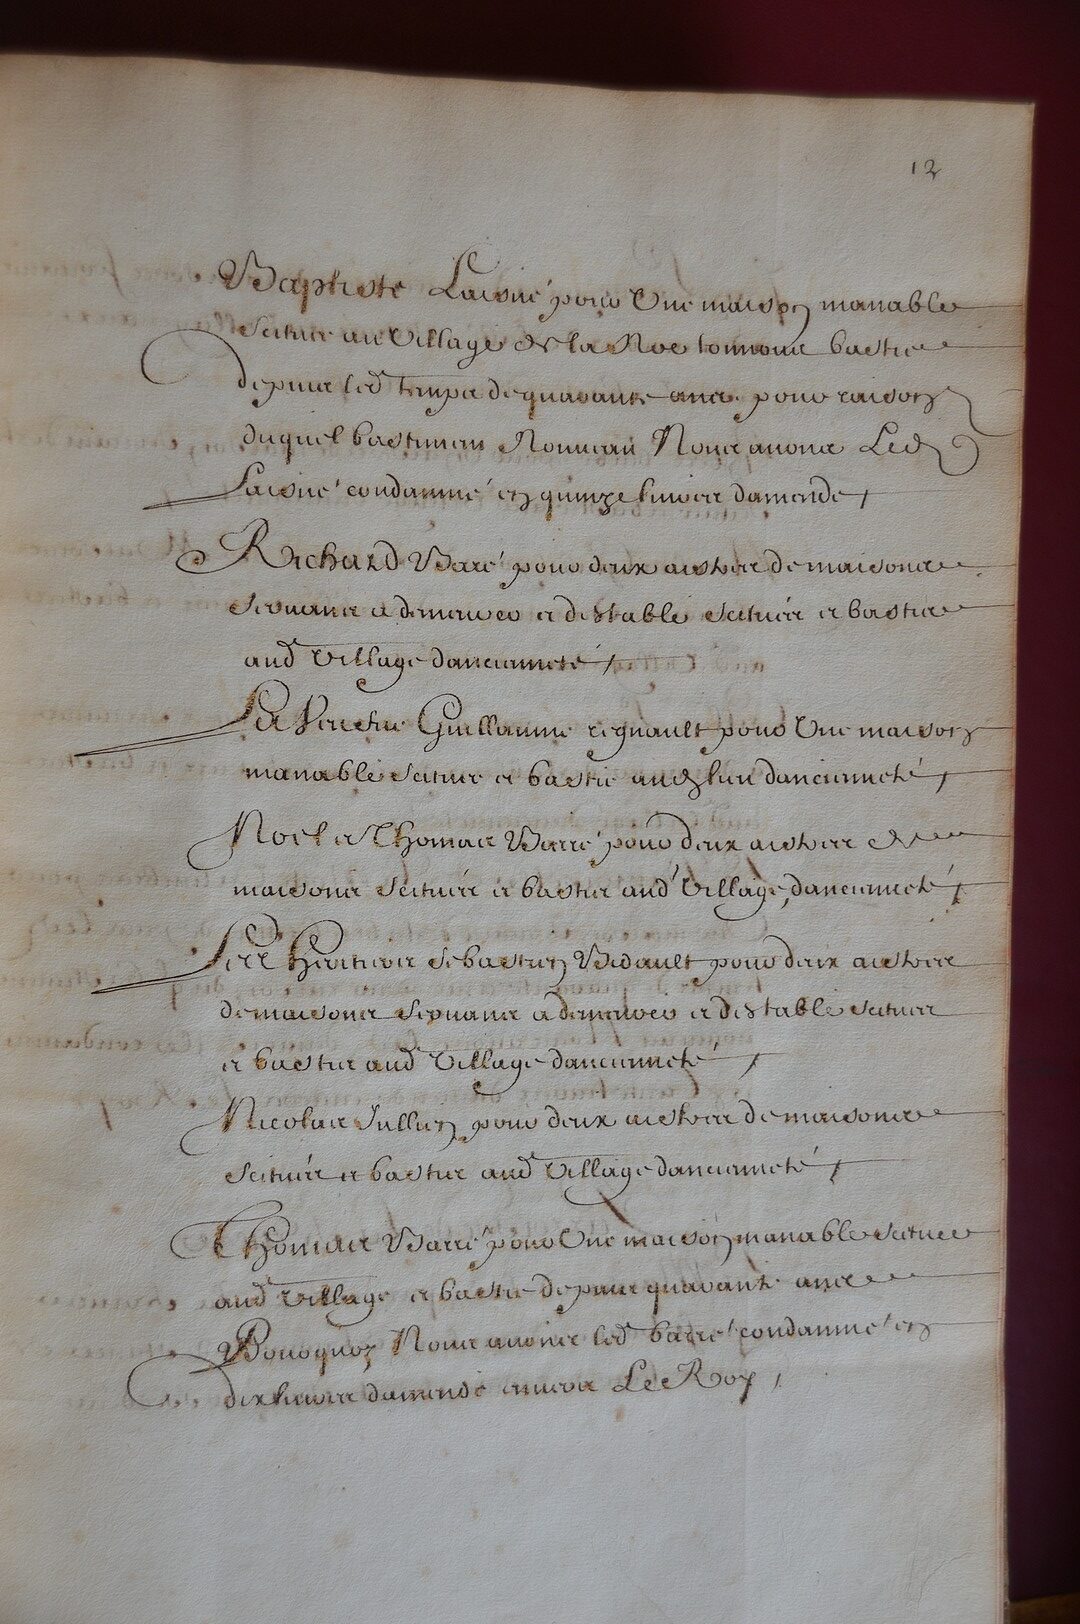 12
Baptiste Laisné pour Une maison manable
Scituée au Village de la Noe bastie
depuis led temps de quarante ans pour raison
duquel bastiment Nouveau Nous avons Led
Laisné condamné en quinze livres damende
Richard Barré pour deux aistres de maisons
servans a demeurer et destable scitués et bastis
aud Village dancienneté
La Veufve Guillaume regnault pour Une maison
manable scituée et bastie aud lieu dancienneté
Noel et Thomas Barré pour deux aistres de
maisons scitués et bastis aud Village dancienneté
Les Heritiers Sebastien Bidault pour deux aistres
de maisons servans a demeurer et destable scitués
et bastis aud Village dancienneté
Nicolas Jullien pour deux aistres de maisons
scitués et bastis aud Village dancienneté
Thomas Barré pour Une maison manable scituée
aud Village et bastie depuis quarante ans
Pourquoy Nous avons led barré condamné en
dix livres damende envers Le Roy